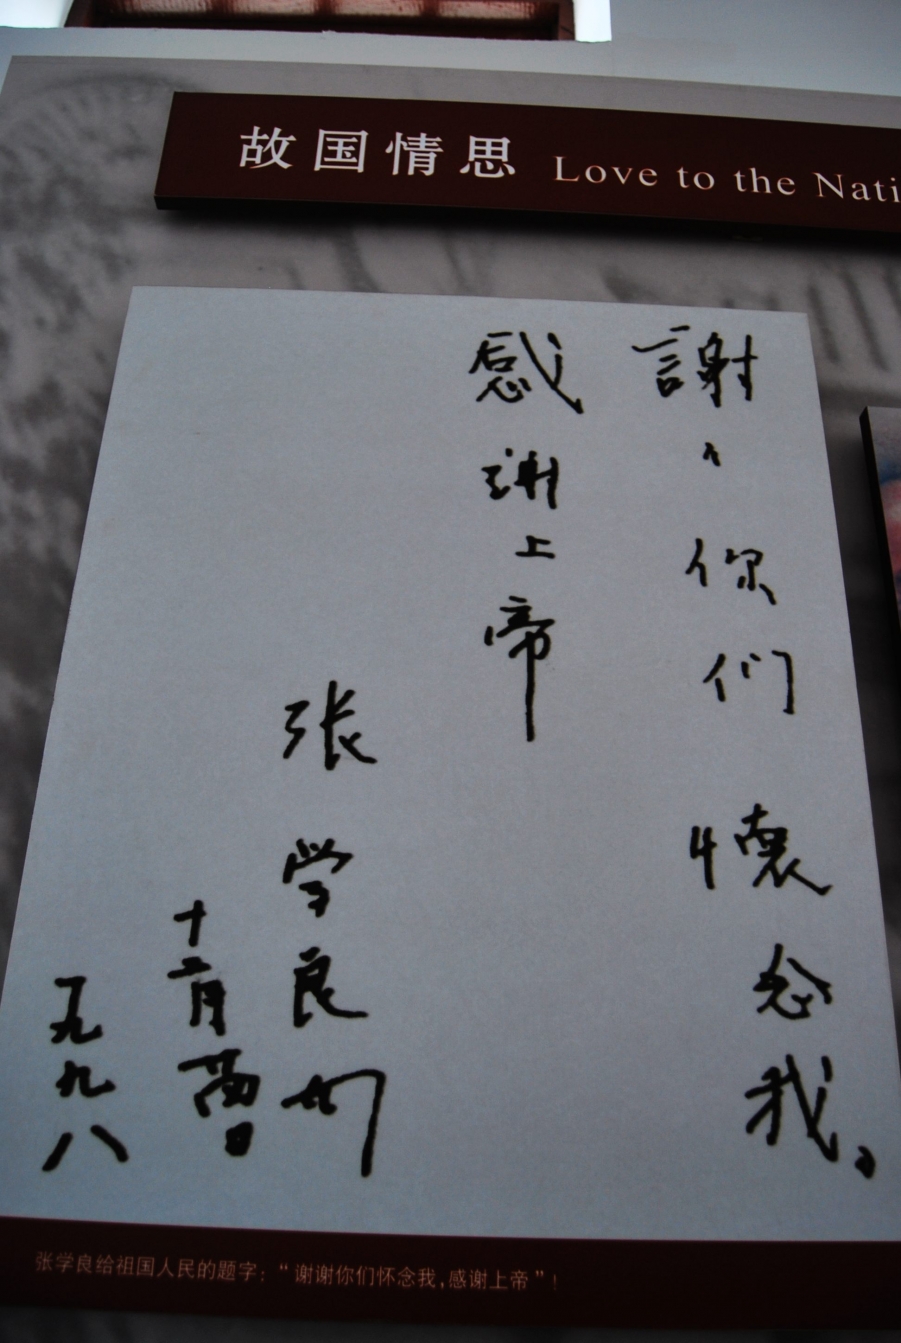 故国情思 Love to the Nati
謝々你们懷念我。
感谢上帝
张学良
十二月
一九九八
张学良给祖国人民的题字：“谢谢你们怀念我，感谢上帝”！